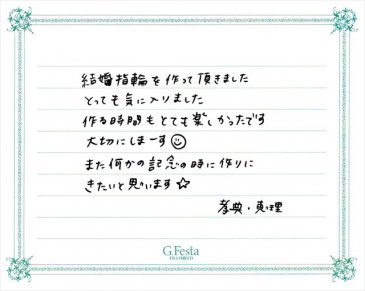 結婚指輪を作って頂きました
とっても気に入りました
作る時間もとても楽しかったです
大切にしまーす☺
また何かの記念の時に作りに
きたいと思います☆
孝典・恵理
G.Festa